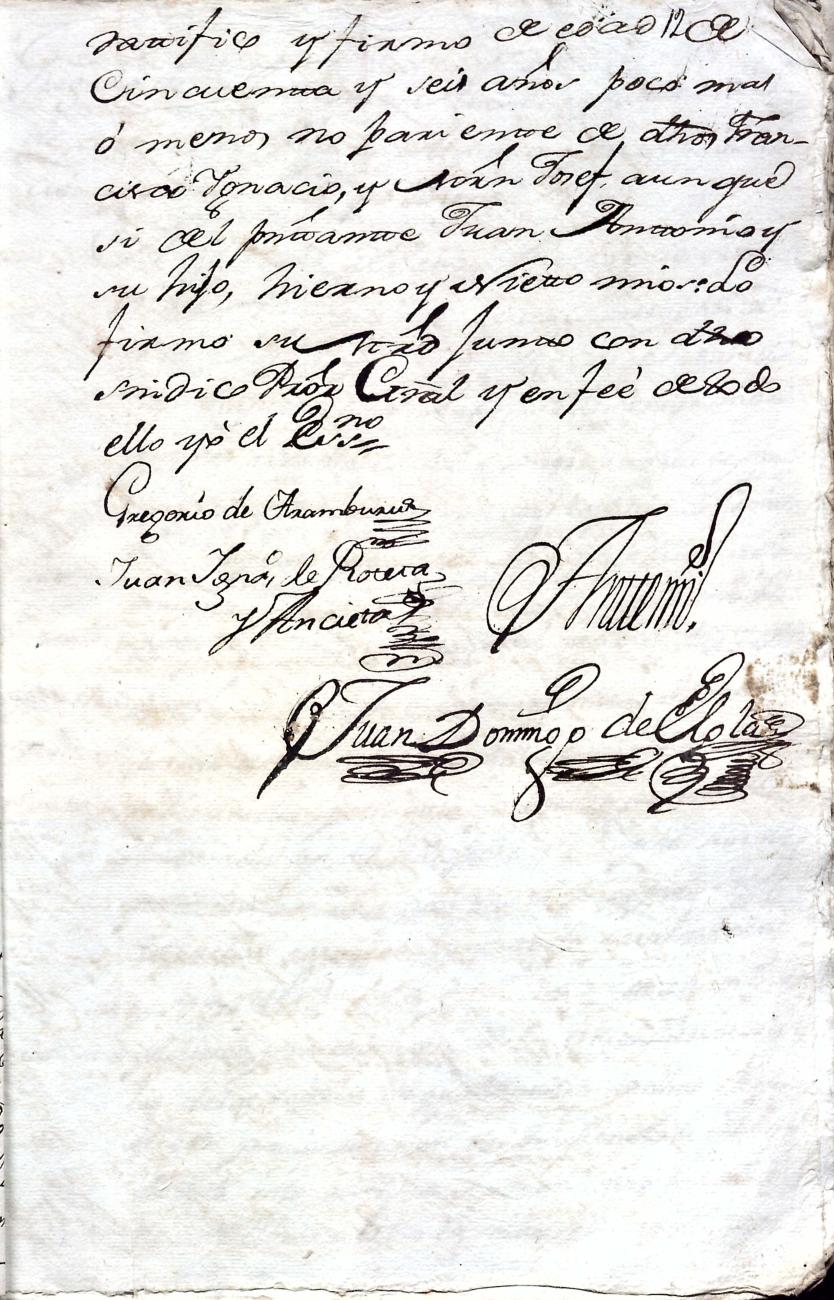 rattifico y firmo de edad 12 de
Cincuentta y seis años poco mas
ó menos no parientte de dhos Fran-
cisco Ignacio, y Josef, aunque
si del Juan Anttonio y
su hijo, hierno y Nietto mio: lo
firmo su mrd juntto con dho
sindico Pror Gral y en feé de todo
ello yó el Essno
Gregorio de Aramburu
Juan Igno, de Roteta
y Ancieta
Anttemi.
Juan Domingo de Elola